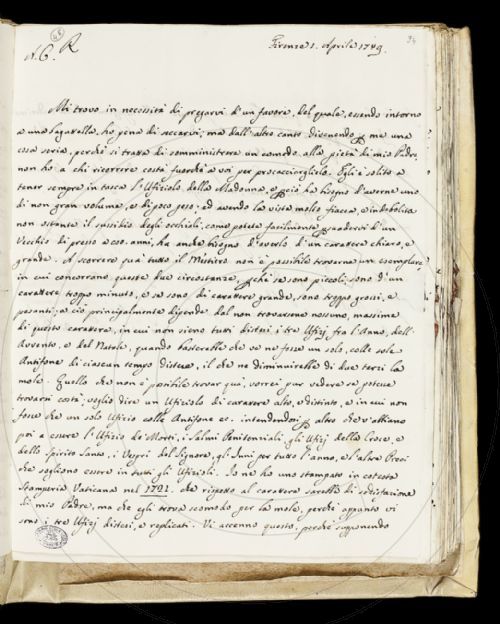 34
A. C. R.
Firenze 1. Aprile 1749.
Mi trovo in necessità di pregarvi d'un favore, del quale, essendo intorno
a una bagattella, ho pena di seccarvi; ma dall'altro canto divenendo p me una
cosa seria, perchè si tratta di somministrare un comodo alla pietà di mio Padre,
non ho a chi ricorrere costà fuorchè a voi per procacciarglielo. Egli è solito a
tener sempre in tasca l'Ufiziolo della Madonna, e pciò ha bisogno d'averne uno
di non gran volume, e di poco peso: ed avendo la vista molto fiacca, e indebolita
non ostante il sussidio degli occhiali, come potete facilmente psuadervi d'un
Vecchio di presso a 80. anni, ha anche bisogno d'averlo d'un carattere chiaro, e
grande. A scorrere quà tutto il Mestiero non è possibile trovarne un esemplare
in cui concorrano queste due circostanze, pchè se sono piccoli, sono d'un
carattere troppo minuto, e se sono di carattere grande, sono troppo grossi, e
pesanti, e ciò principalmente dipende dal non trovarsene nessuno, massime
di questo carattere, in cui non sieno tutti distesi i tre Ufizj fra l'Anno, dell'
Avvento, e del Natale, quando basterebbe che ve ne fosse un solo, colle sole
Antifone di ciascun tempo distese, il che ne diminuirebbe di due terzi la
mole. Quello che non è possibile trovar quà, vorrei pur vedere se potesse
trovarsi costà; voglio dire un Ufiziolo di carattere alto, e distinto, e in cui non
fosse che un solo Ufizio colle Antifone ec. intendendosi p altro che v'abbiano
poi a essere l'Ufizio de Morti, i Salmi Penitenziali, gli Ufizj della Croce, e
dello Spirito Santo, i Vespri del Signore, gl'Inni per tutto l'anno, e l'altre Preci
che sogliono essere in tutti gli Ufizioli. Io ne ho uno stampato in cotesta
Stamperia Vaticana nel 1721. che rispetto al carattere sarebbe di sodisfazione
di mio Padre, ma che egli trova scomodo per la mole, perchè appunto vi
sono i tre Ufizj distesi, e replicati. Vi accenno questo, perchè supponendo